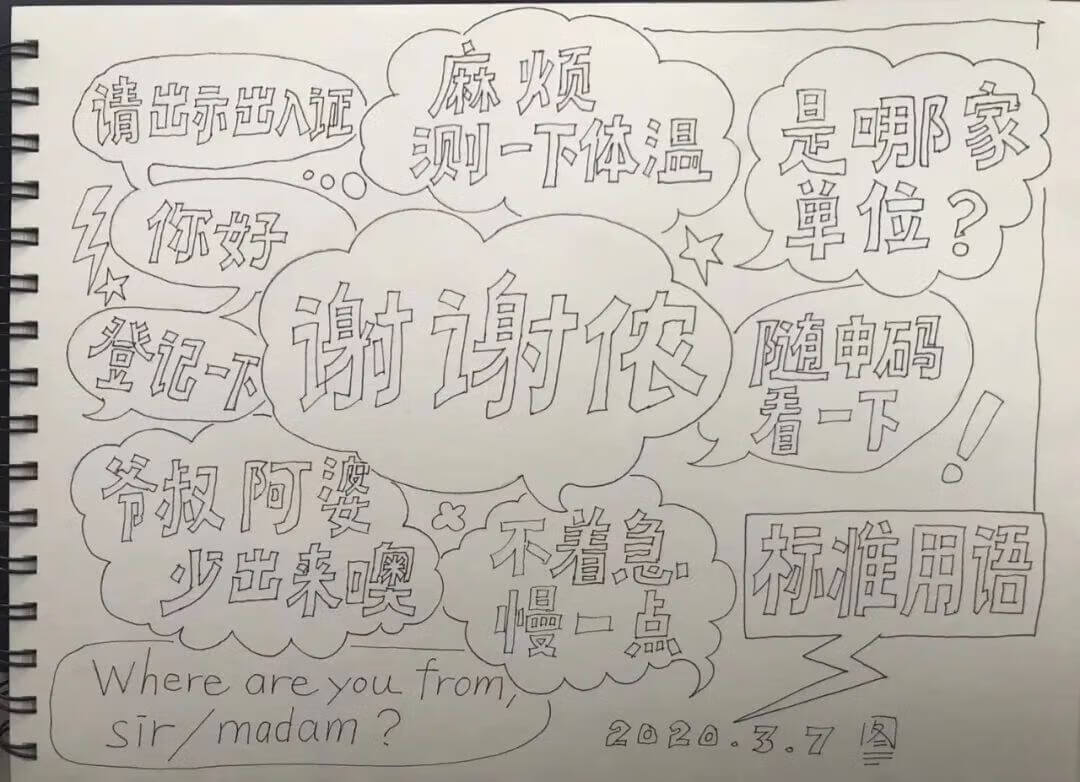 请出示出入证
麻烦
测一下体温
是哪家
単位?
你好
谢谢侬
登记一下
随申码
看一下
爷叔阿婆
少出来噢
不着急.
慢一点
标准用语
Where are you from,
sir/madam?
2020.3.7 图